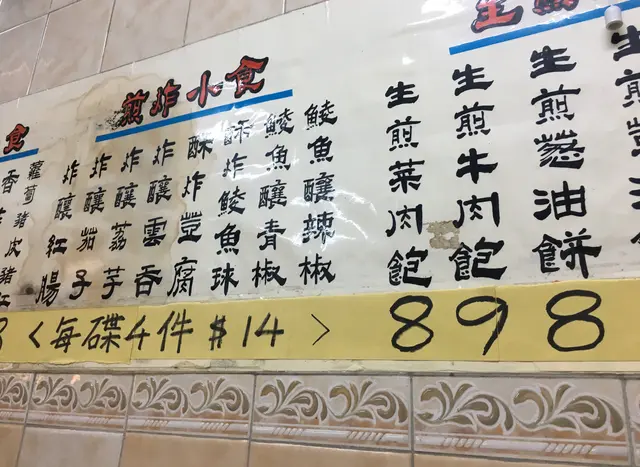 生
生煎
生煎葱油餅
生煎牛肉飽
生煎菜肉飽
煎炸小食
鯪魚釀辣椒
鯪魚釀青椒
酥炸鯪魚球
酥炸豈腐
炸釀雲吞
炸釀荔芋
炸釀茄子
炸釀紅腸
食
蘿蔔豬皮豬紅
香
<每碟4件$14> 8 9 8